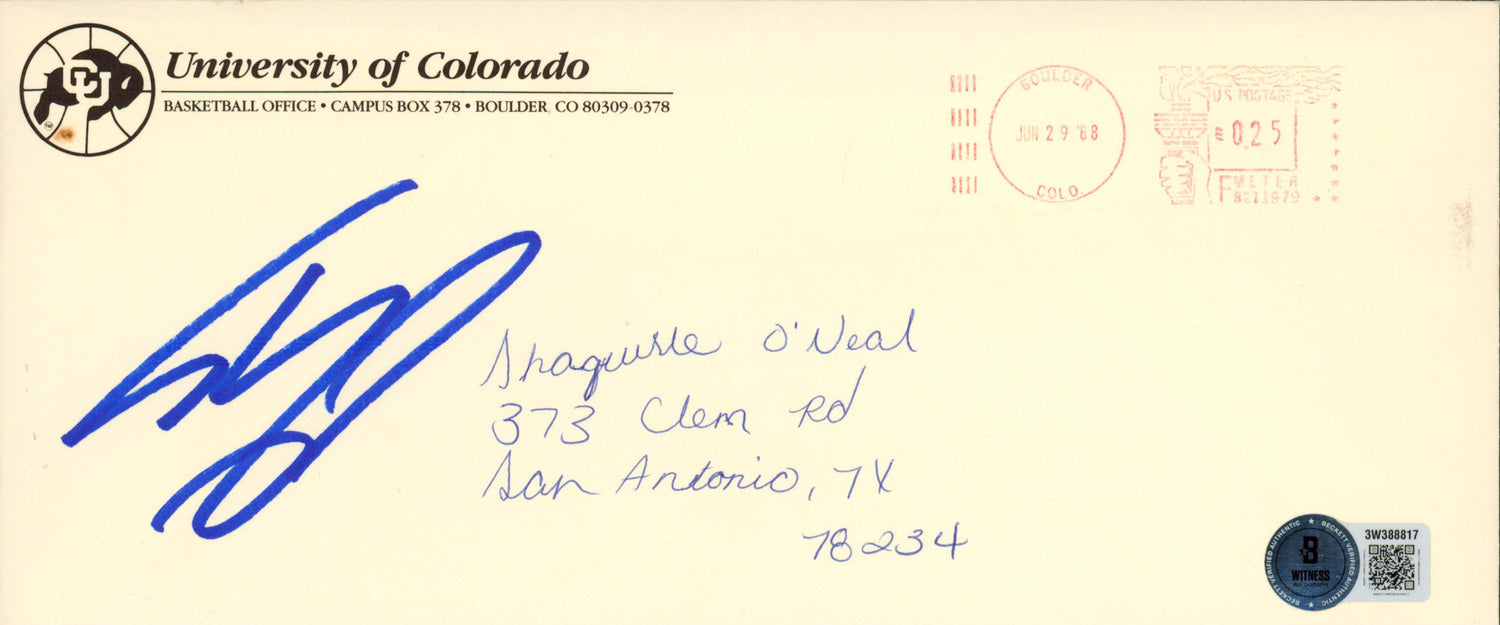 CU
University of Colorado
BASKETBALL OFFICE • CAMPUS BOX 378 • BOULDER, CO 80309-0378
BOULDER
JUN 29 '88
COLO.
U.S. POSTAGE
0.25
METER
Shaquille O'Neal
373 Clem Rd
San Antonio, TX
78234
BECKETT VERIFIED AUTHENTIC ★ BECKETT VERIFIED AUTHENTIC ★
B
WITNESS
3W388817